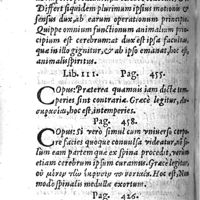 Differt siquidem plurimum ipsius motionis &
sensus dux, ab earum operationum principio.
Quippe omnium functionum animalium princi-
pium est cerebrum: at dux est ipsa facultas,
quæ in illo gignitur, & ab ipso emanat, hoc est,
animalis spiritus.
Lib. III. Pag. 455.
Copus: Præterea quamuis iam dictæ tem-
peries sint contraria. Græcè legitur,
hoc est, intemperies.
Pag. 458.
Copus: Si verò simul cum vniuerso corpo-
re facies quoque conuulsa videatur, nō il-
lam eam partem quæ ex spina procedit, verùm
etiam cerebrum ipsum curamus. Græcè legitur,
οὐ μόνον τῶν Hoc est, Non
modo spinalis medullæ exortum.
Pag. 426.